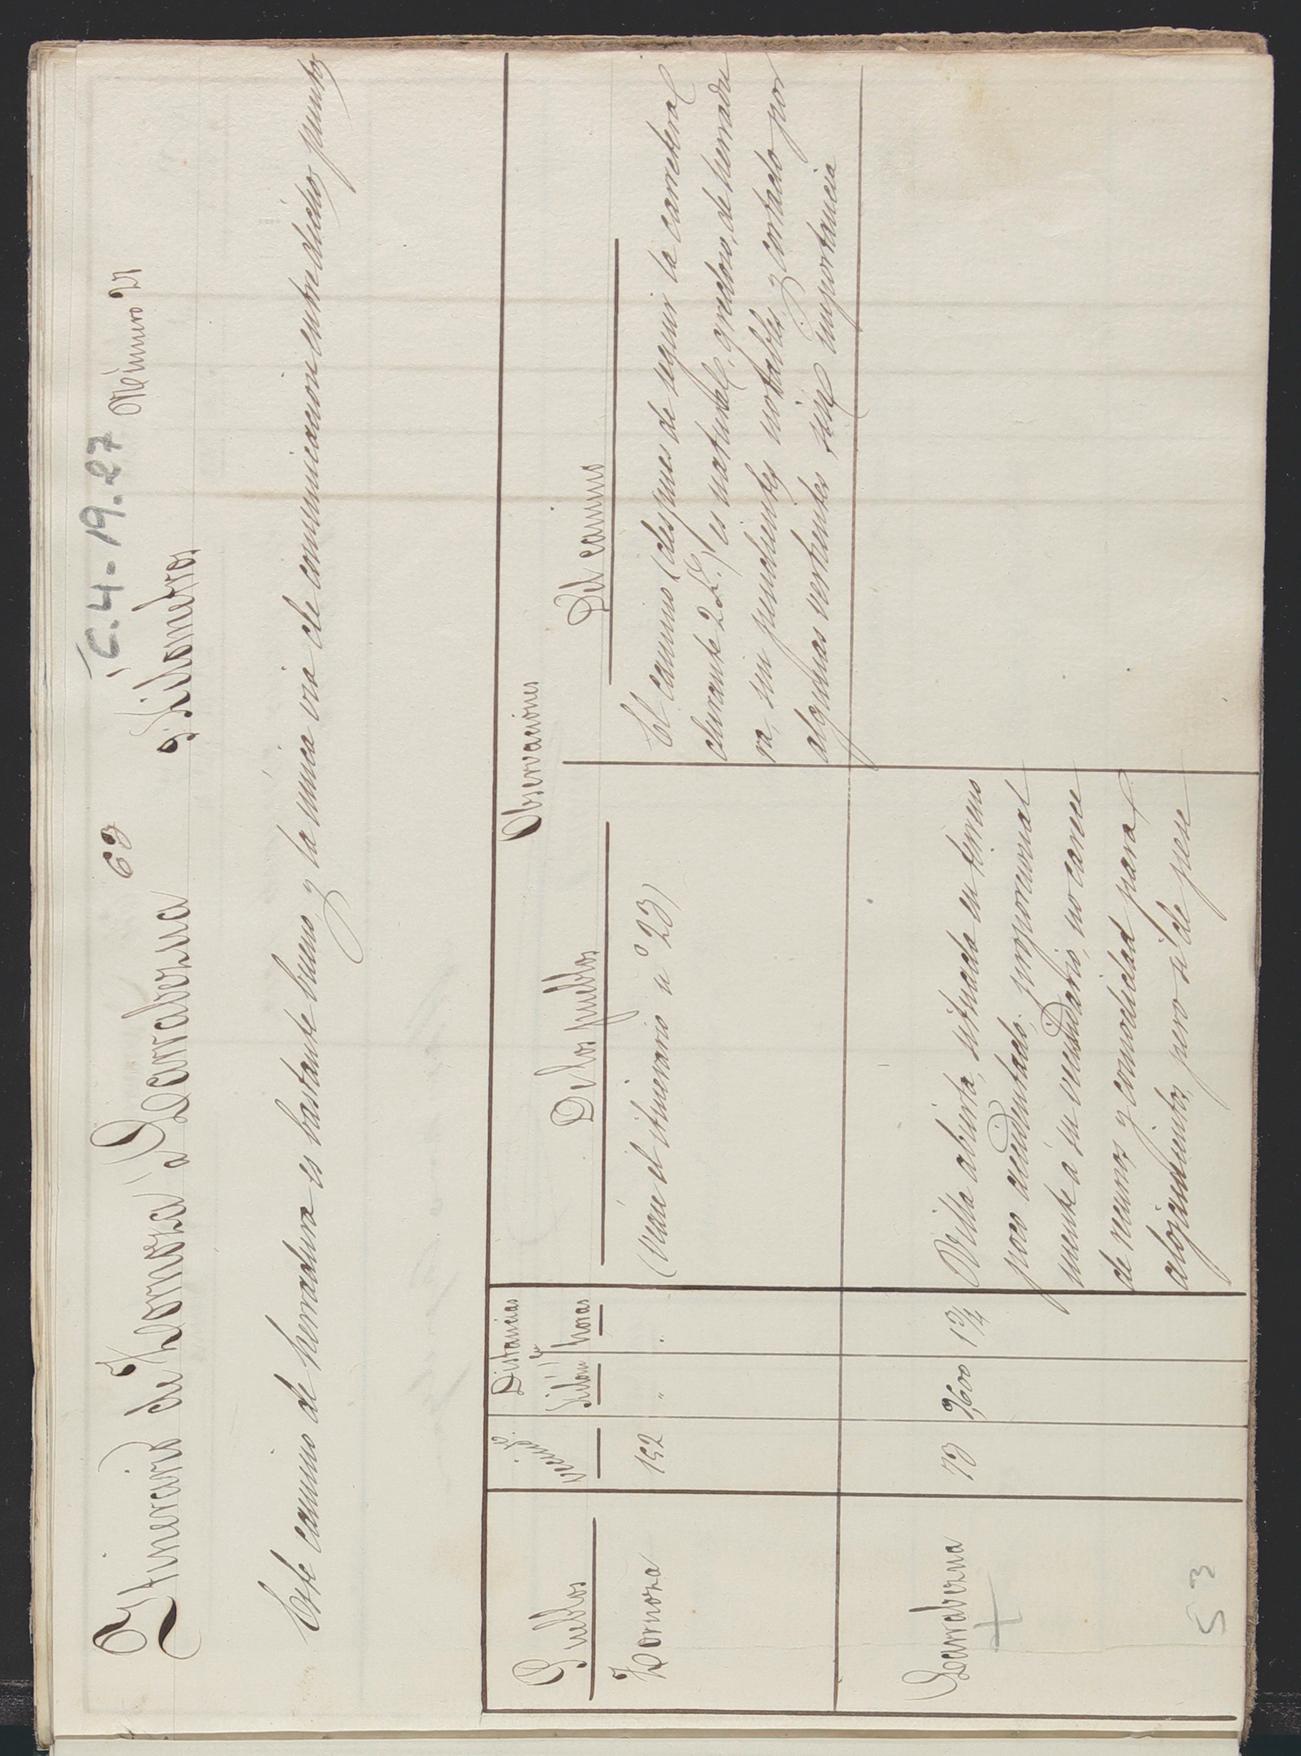 C.4-19.27
Número 27
Itinerario de Zornoza á Larrabezua
Kilometros
Este camino de herradura es bastante bueno y la unica via de comunicacion entre dichos puntos
Observaciones
Pueblos
vecin.s
Distancias
Kilom.s
horas
De los pueblos
Del camino
Zornoza
152
"
"
(véase el itinerario nº 23)
El camino (despues de seguir la carretera
durante 2 K.) es natural, gredoso, de herradu
ra, sin pendientes notables y cortado por
algunas vertientes sin importancia
Larrabezua
73
9,600
1 3/4
Villa abierta, situada en terreno
poco accidentado: proporcional
mente á su vecindario, no carece
de recursos y comodidad para
alojamientos, pero si de
53